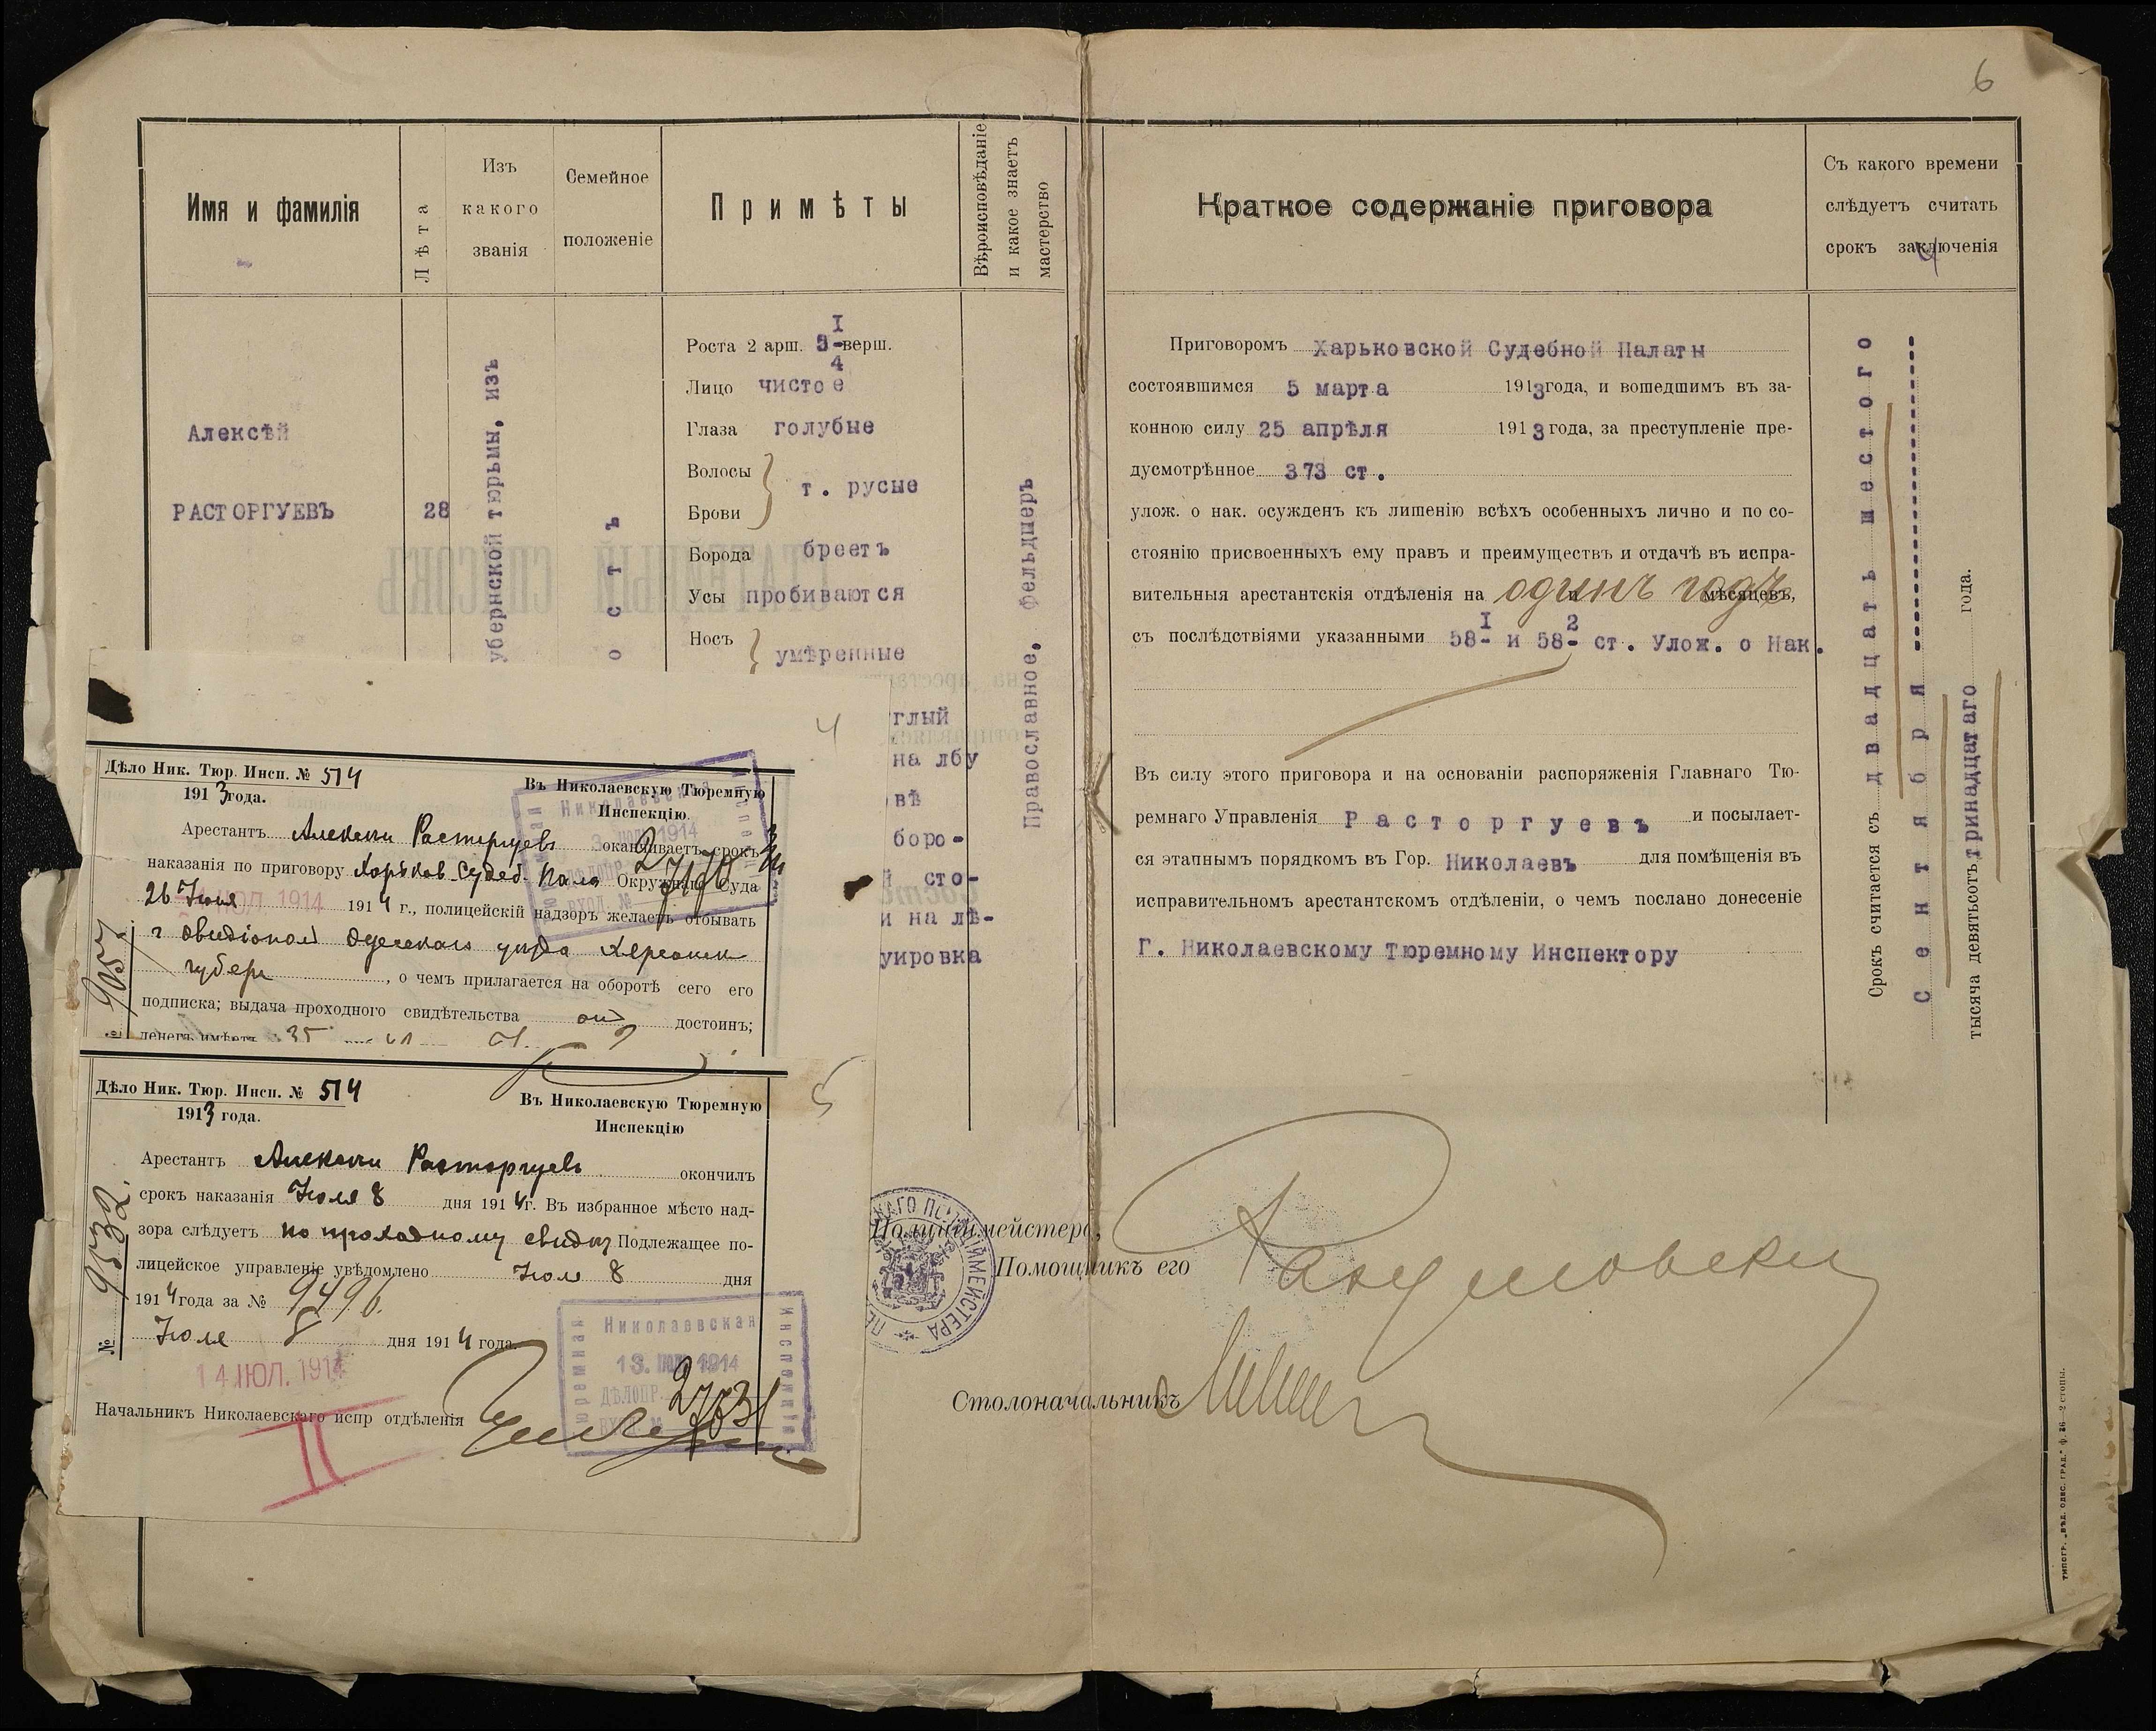 6
Имя и фамилія
Лѣта
Изъ
какого
званія
Семейное
положеніе
Примѣты
Вѣроисповѣданіе
и какое знаетъ
мастерство
Алексѣй
РАСТОРГУЕВЪ
28
убернской тюрьмы, изъ
о с т ъ
Роста 2 арш. 3 1/4 верш.
Лицо чистое
Глаза голубые
Волосы
Брови
т. русые
Борода бреетъ
Усы пробиваются
Носъ
умѣренные
глый
на лбу
вѣ
боро-
сто-
и на лѣ-
уировка
Православное, фельдшеръ
4
Дѣло Ник. Тюр. Инсп. № 514
1913 года.
Въ Николаевскую Тюремную
Инспекцію.
Арестантъ Алексѣй Расторгуевъ оканчиваетъ срокъ
наказанія по приговору Харьков. Судеб. Пала Окружнаго Суда
26 Іюня 1914 г., полицейскій надзоръ желаетъ отбывать
г Овидіополѣ Одесскаго уѣзда Херсонск
губерн , о чемъ прилагается на оборотѣ сего его
подписка; выдача проходного свидѣтельства достоинъ;
денегъ имѣетъ 35
9057
ИЮЛ. 1914
27170
5
Дѣло Ник. Тюр. Инсп. № 514
1913 года.
Въ Николаевскую Тюремную
Инспекцію
Арестантъ Алексѣй Расторгуевъ окончилъ
срокъ наказанія Іюля 8 дня 1914 г. Въ избранное мѣсто над-
зора слѣдуетъ по проходному свидѣт Подлежащее по-
лицейское управленіе увѣдомлено Іюля 8 дня
1914 года за № 9496.
Іюля 8 дня 1914 года.
№ 9532.
14 ІЮЛ. 1914
Николаевская
Тюремная
Инспекція
13. ІЮЛ 1914
ДѢЛОПР.
27631
Начальникъ Николаевскаго испр отдѣленія
II
Краткое содержаніе приговора
Съ какого времени
слѣдуетъ считать
срокъ заключенія
Приговоромъ Харьковской Судебной Палаты
состоявшимся 5 марта 1913 года, и вошедшимъ въ за-
конною силу 25 апрѣля 1913 года, за преступленіе пре-
дусмотрѣнное 373 ст.
улож. о нак. осужденъ къ лишенію всѣхъ особенныхъ лично и по со-
стоянію присвоенныхъ ему правъ и преимуществъ и отдачѣ въ испра-
вительныя арестантскія отдѣленія на одинъ годъ мѣсяцевъ,
съ послѣдствіями указанными 58-1 и 58-2 ст. Улож. о Нак.
Въ силу этого приговора и на основаніи распоряженія Главнаго Тю-
ремнаго Управленія Расторгуевъ и посылает-
ся этапнымъ порядкомъ въ Гор. Николаевъ для помѣщенія въ
исправительномъ арестантскомъ отдѣленіи, о чемъ послано донесеніе
Г. Николаевскому Тюремному Инспектору
Срокъ считается съ двадцать шестого
Сентября
тысяча девятьсотъ тринадцатаго года.
Полиціймейстеръ,
Помощникъ его
Столоначальникъ
ТИПОГР. „ВѢД. ОДЕС. ГРАД.“ ф. 36—2 стопы.